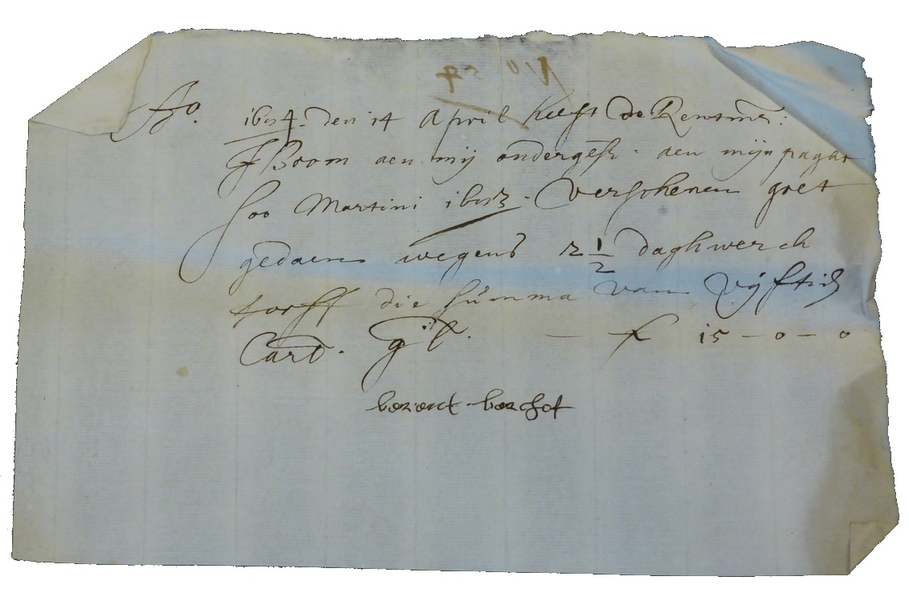 No 54
Ao. 1654. den 14 April heeft de Rentmr:
J Boom aen mij ondergesz. aen mijn pagat
soo Martini 1653. Verschenen goet
gedaen wegens 12 1/2 daghwerck
torff die summa van Vijftich
Card. gl. — f 15 – 0 – 0
berent